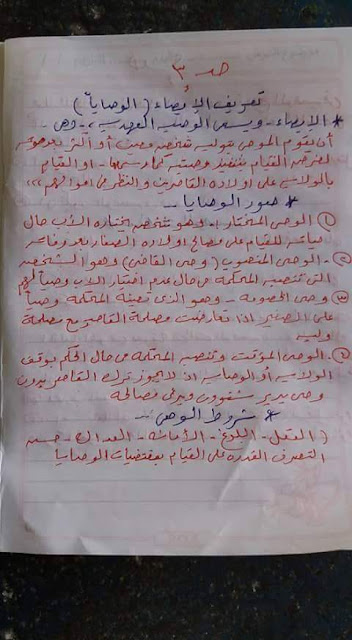 صـ ٣
تعريف الإيصاء (الوصايا)
* الإيصاء - ويسمى الوصية العهدية، وهى
أن يقوم الموصى بتولية شخص وصى أو أكثر بعد موته
لغرض القيام بتنفيذ وصيته كما رسمها - او القيام
بالولاية على اولاده القاصرين والنظر فى اموالهم
* صور الوصايا --
① الوصى المختار :- وهو شخص يختاره الأب حال
حياته للقيام على مصالح اولاده الصغار بعد وفاته
② - الوصى المنصوب (وصى القاضى) وهو الشخص
التى تنصبه المحكمة فى حال عدم اختيار الاب وصياً لهم
③ وصى الخصومة - وهو الذى تعينة المحكمة وصياً
على الصغير اذا تعارضت مصلحة القاصر مع مصلحة
وليه
④ - الوصى المؤقت وتنصبه المحكمة فى حال الحكم بوقف
الولاية أو الوصاية اذ لا يجوز ترك القاصر بدون
وصى يدير شئوون ويرعى مصالحه
* شروط الوصى --
( العقل - البلوغ - الأمانة - العدالة - حسن
التصرف القدرة على القيام بمقتضيات الوصايا